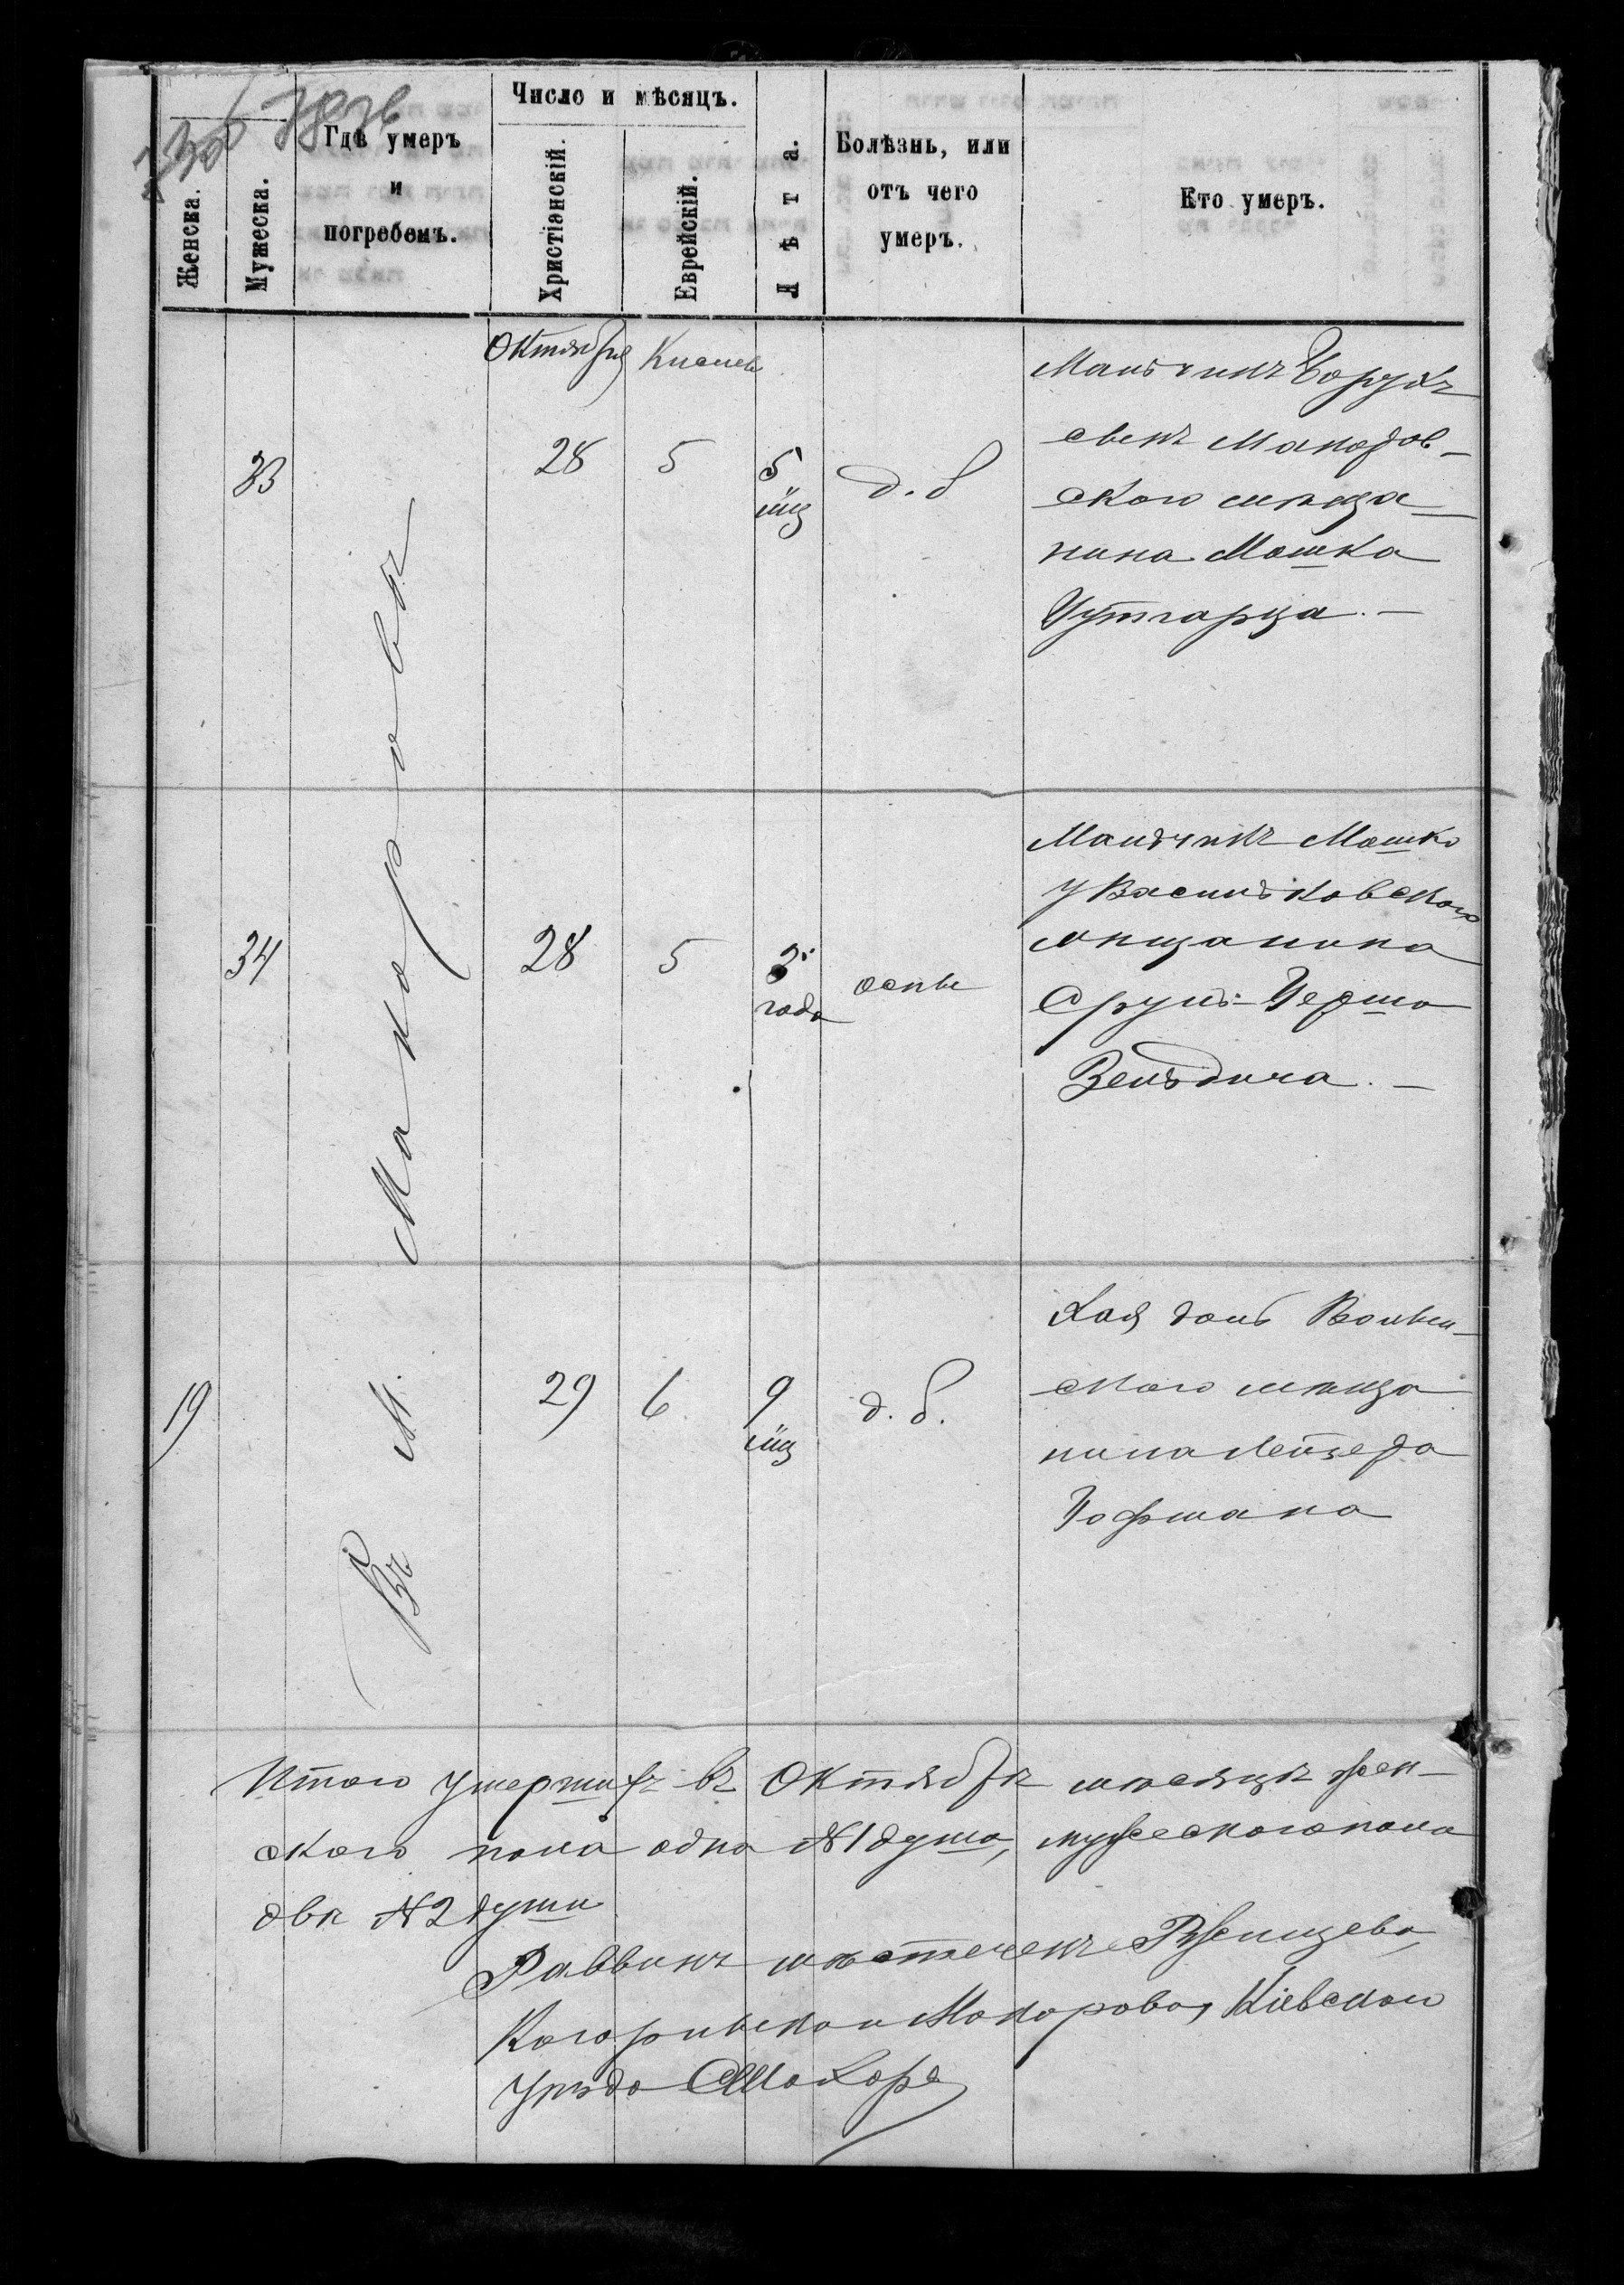 Число и мѣсяцъ.
Женска.
Мужеска.
Гдѣ умеръ
и
погребенъ.
Христіанскій.
Еврейскій.
Лѣта.
Болѣзнь, или
отъ чего
умеръ.
Кто умеръ.
Октября Кислев
33
28 5 5 мц д. б
Мальчикъ Борухъ
сынъ Макаров-
скаго мѣща-
нина Мошка
34
28 5 3 года оспы
Мальчикъ Мошко
у Васильковскаго
мѣщанина
Сруль-Герша
Зельдича.-
Въ М. Макаровѣ
19
29 6 9 мц д. б.
Хая дочь
скаго мѣща
нина Лейзера
Гофмана
Итого умершихъ въ Октябрѣ мѣсяцѣ жен-
скаго пола одна №1 душа, мужескаго пола
двѣ №2 души
Раввинъ мѣстечекъ Ржищева,
Кагарлыка и Макарова, Кіевскаго
уѣзда